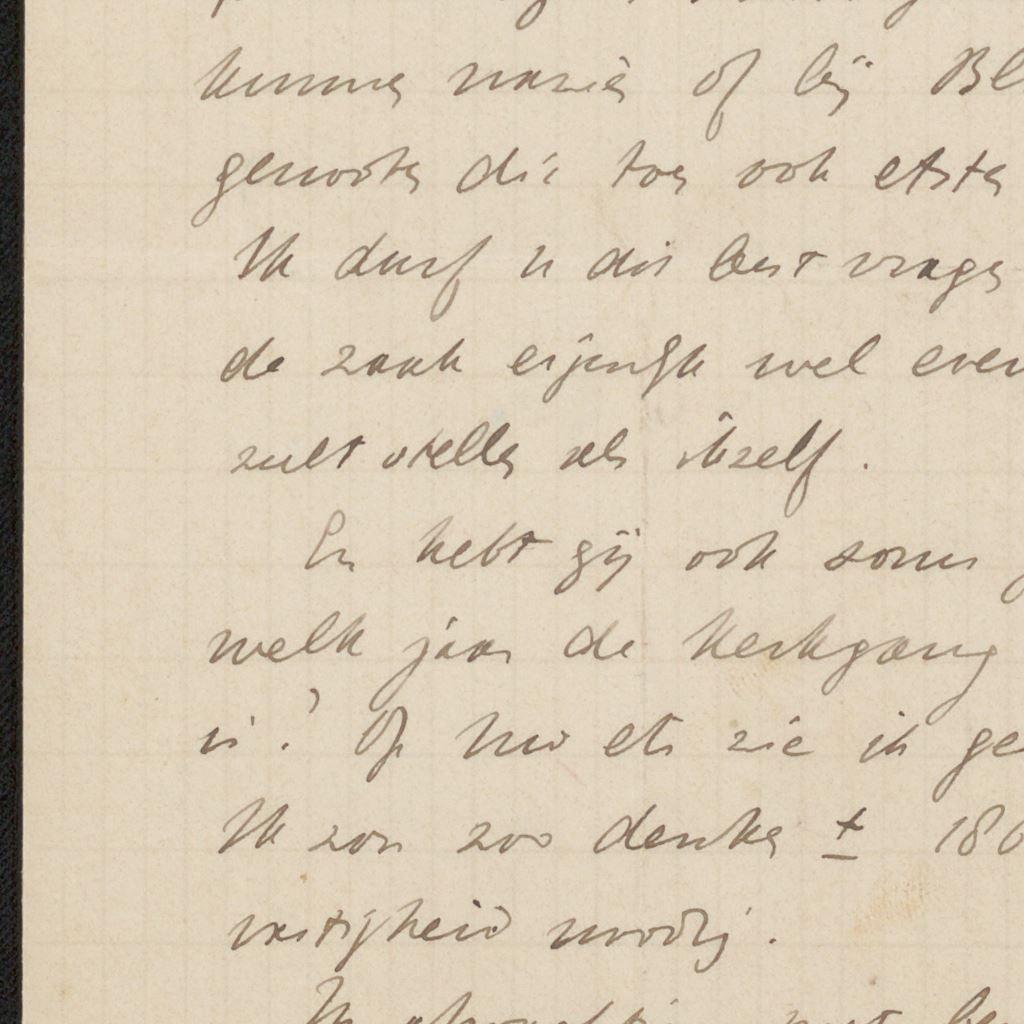 kunnen nazien of bij Bl
genooten die toen ook etsten
Ik durf u dit best vragen
de zaak eigenlijk wel even
zult stellen als ikzelf.
En hebt gij ook soms
welk jaar de Kerkgang
is? Op Uw ets zie ik ge
Ik zou zoo denken ± 186
vastigheid noodig.
Ik